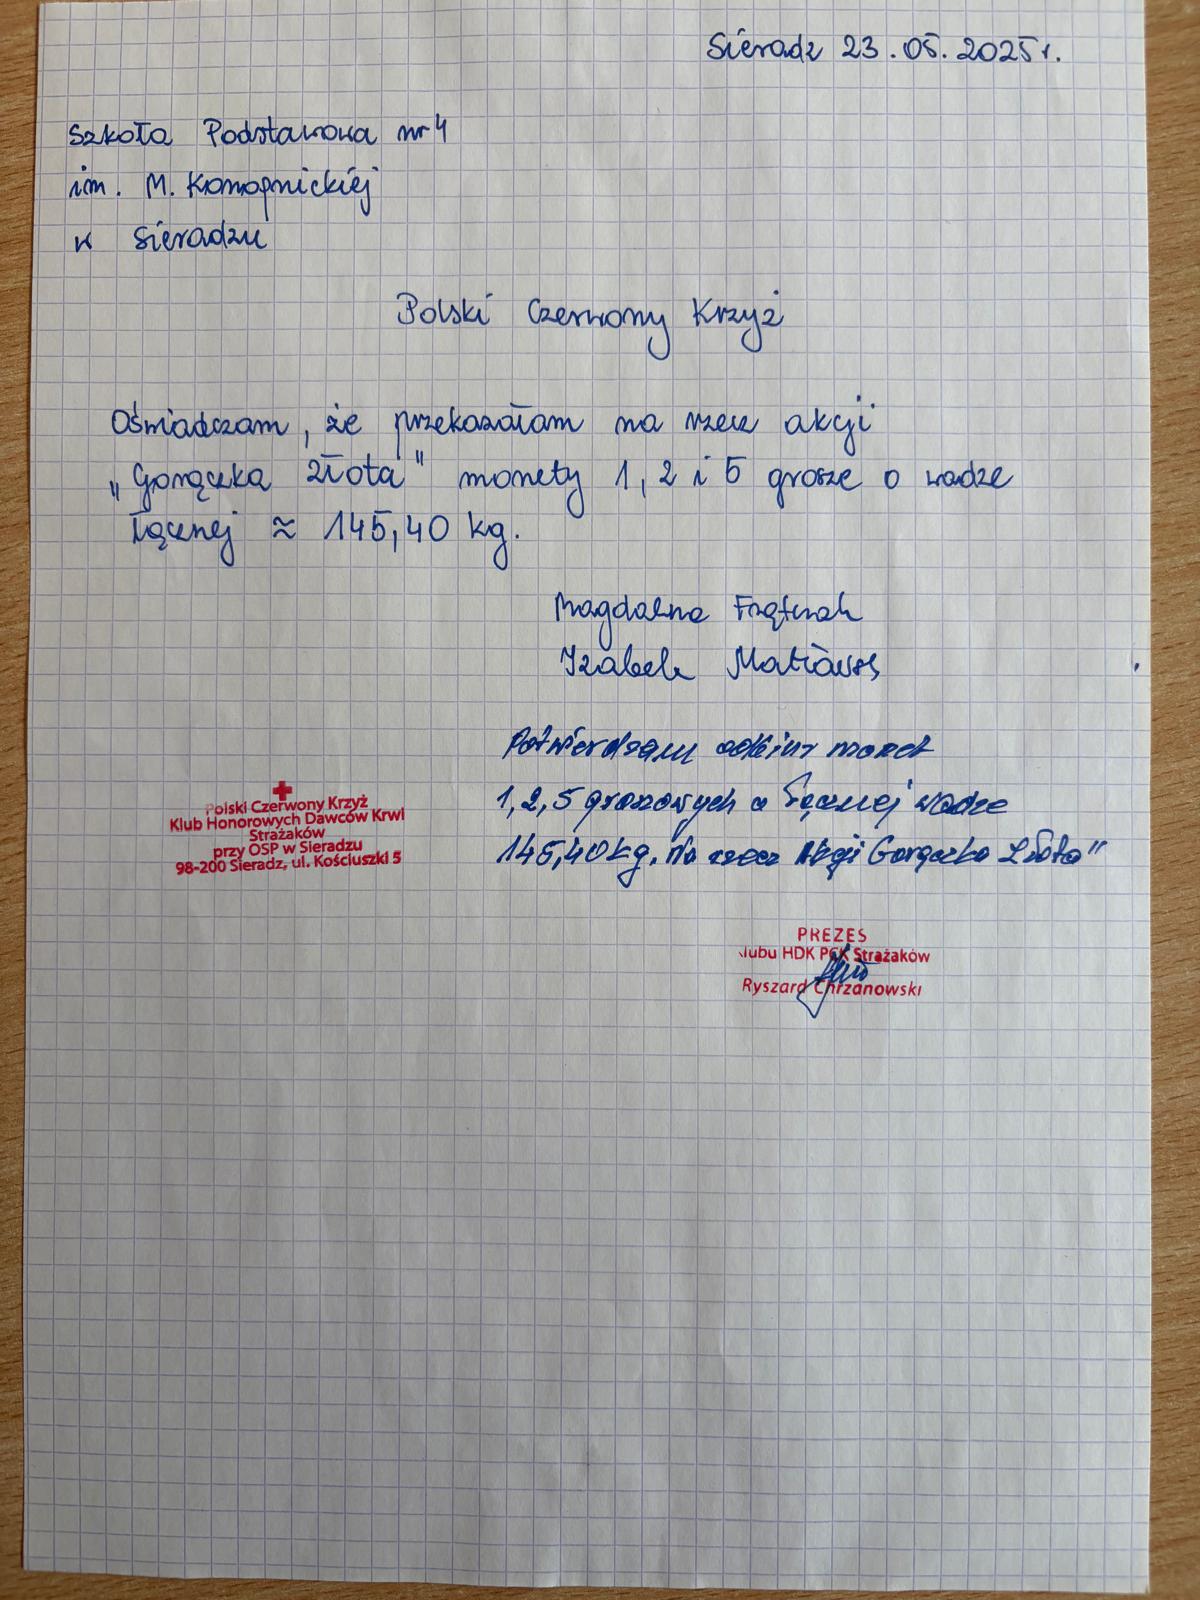 Sieradz 23.05.2025r.
Szkoła Podstawowa nr 4
im. M. Konopnickiej
w Sieradzu
Polski Czerwony Krzyż
Oświadczam, że przekazałam na rzecz akcji
„Gorączka złota" monety 1, 2 i 5 grosze o wadze
łącznej ≈ 145,40 kg.
Magdalena
Izabela
Potwierdzam odbiór monet
1, 2, 5 groszowych o łącznej wadze
145,40 kg. na rzecz Akcji Gorączka Złota"
Polski Czerwony Krzyż
Klub Honorowych Dawców Krwi
Strażaków
przy OSP w Sieradzu
98-200 Sieradz, ul. Kościuszki 5
PREZES
lubu HDK PCK Strażaków
Ryszard Chrzanowski